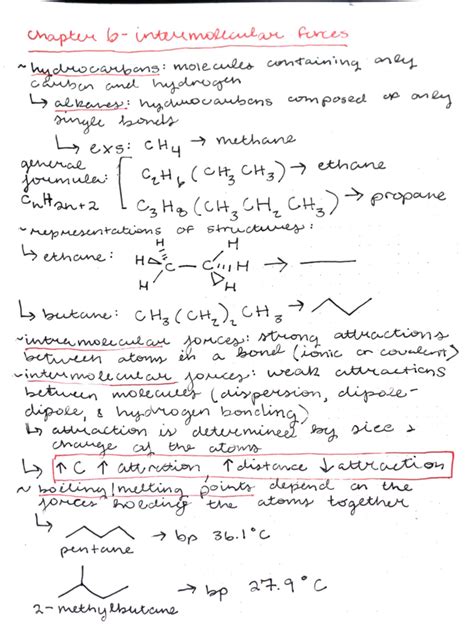 chapter 6 - intermolecular forces
~ hydrocarbons: molecules containing only
carbon and hydrogen
↳ alkanes: hydrocarbons composed of only
single bonds
↳ exs: CH₄ → methane
general
formula:
CₙH₂ₙ₊₂
C₂H₆ (CH₃ CH₃) → ethane
C₃H₈ (CH₃ CH₂ CH₃) → propane
~ representations of structures:
↳ ethane: H H H C — C H H H →
↳ butane: CH₃ (CH₂)₂ CH₃ →
~ intramolecular forces: strong attractions
between atoms in a bond (ionic or covalent)
~ intermolecular forces: weak attractions
between molecules (dispersion, dipole-
dipole, & hydrogen bonding)
↳ attraction is determined by size &
charge of the atoms
↳ ↑ C ↑ attraction, ↑ distance ↓ attraction
~ boiling/melting points depend on the
forces holding the atoms together
↳ → bp 36.1°C
pentane
→ bp 27.9°C
2-methylbutane